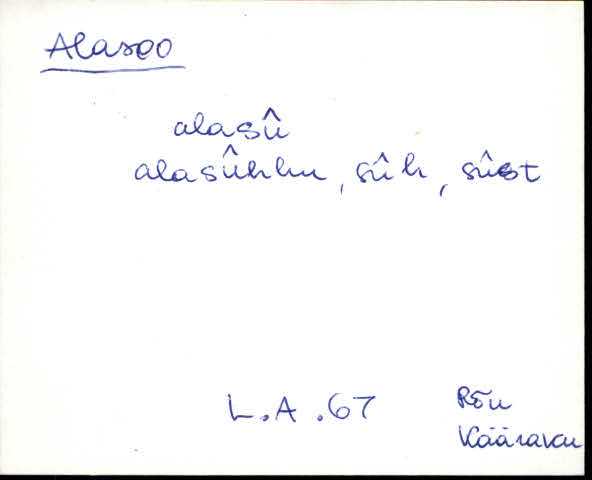 Alasoo
alasû
alasûhhu, sûh, sûst
L.A.67 Rõu
Kääraku